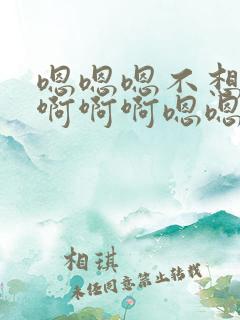 嗯嗯嗯不想
啊啊啊嗯嗯
相琪
未经同意禁止转载